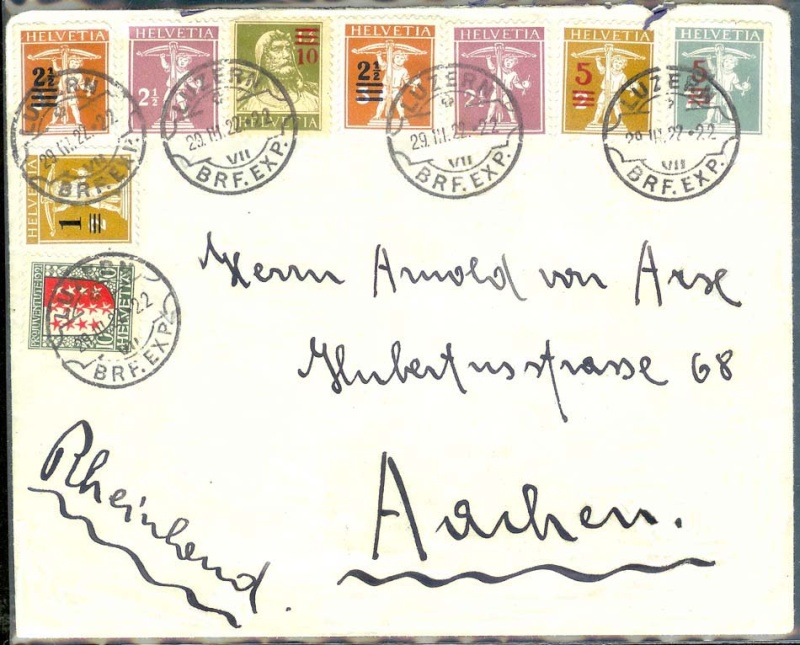 HELVETIA HELVETIA HELVETIA HELVETIA HELVETIA HELVETIA
2½ 2½ 10 2½ 2½ 5 5
HELVETIA
LUZERN LUZERN LUZERN LUZERN
29.III.22.-22 29.III.22.-22 29.III.22.-22 29.III.22.-22
VII VII VII VII
BRF. EXP. BRF. EXP. BRF. EXP. BRF. EXP.
HELVETIA
1
PRO JUVENTUTE 1921
HELVETIA
10
LUZERN
22
BRF. EXP.
Herrn Arnold von Arse
Hubertusstrasse 68
Aachen.
Rheinland.